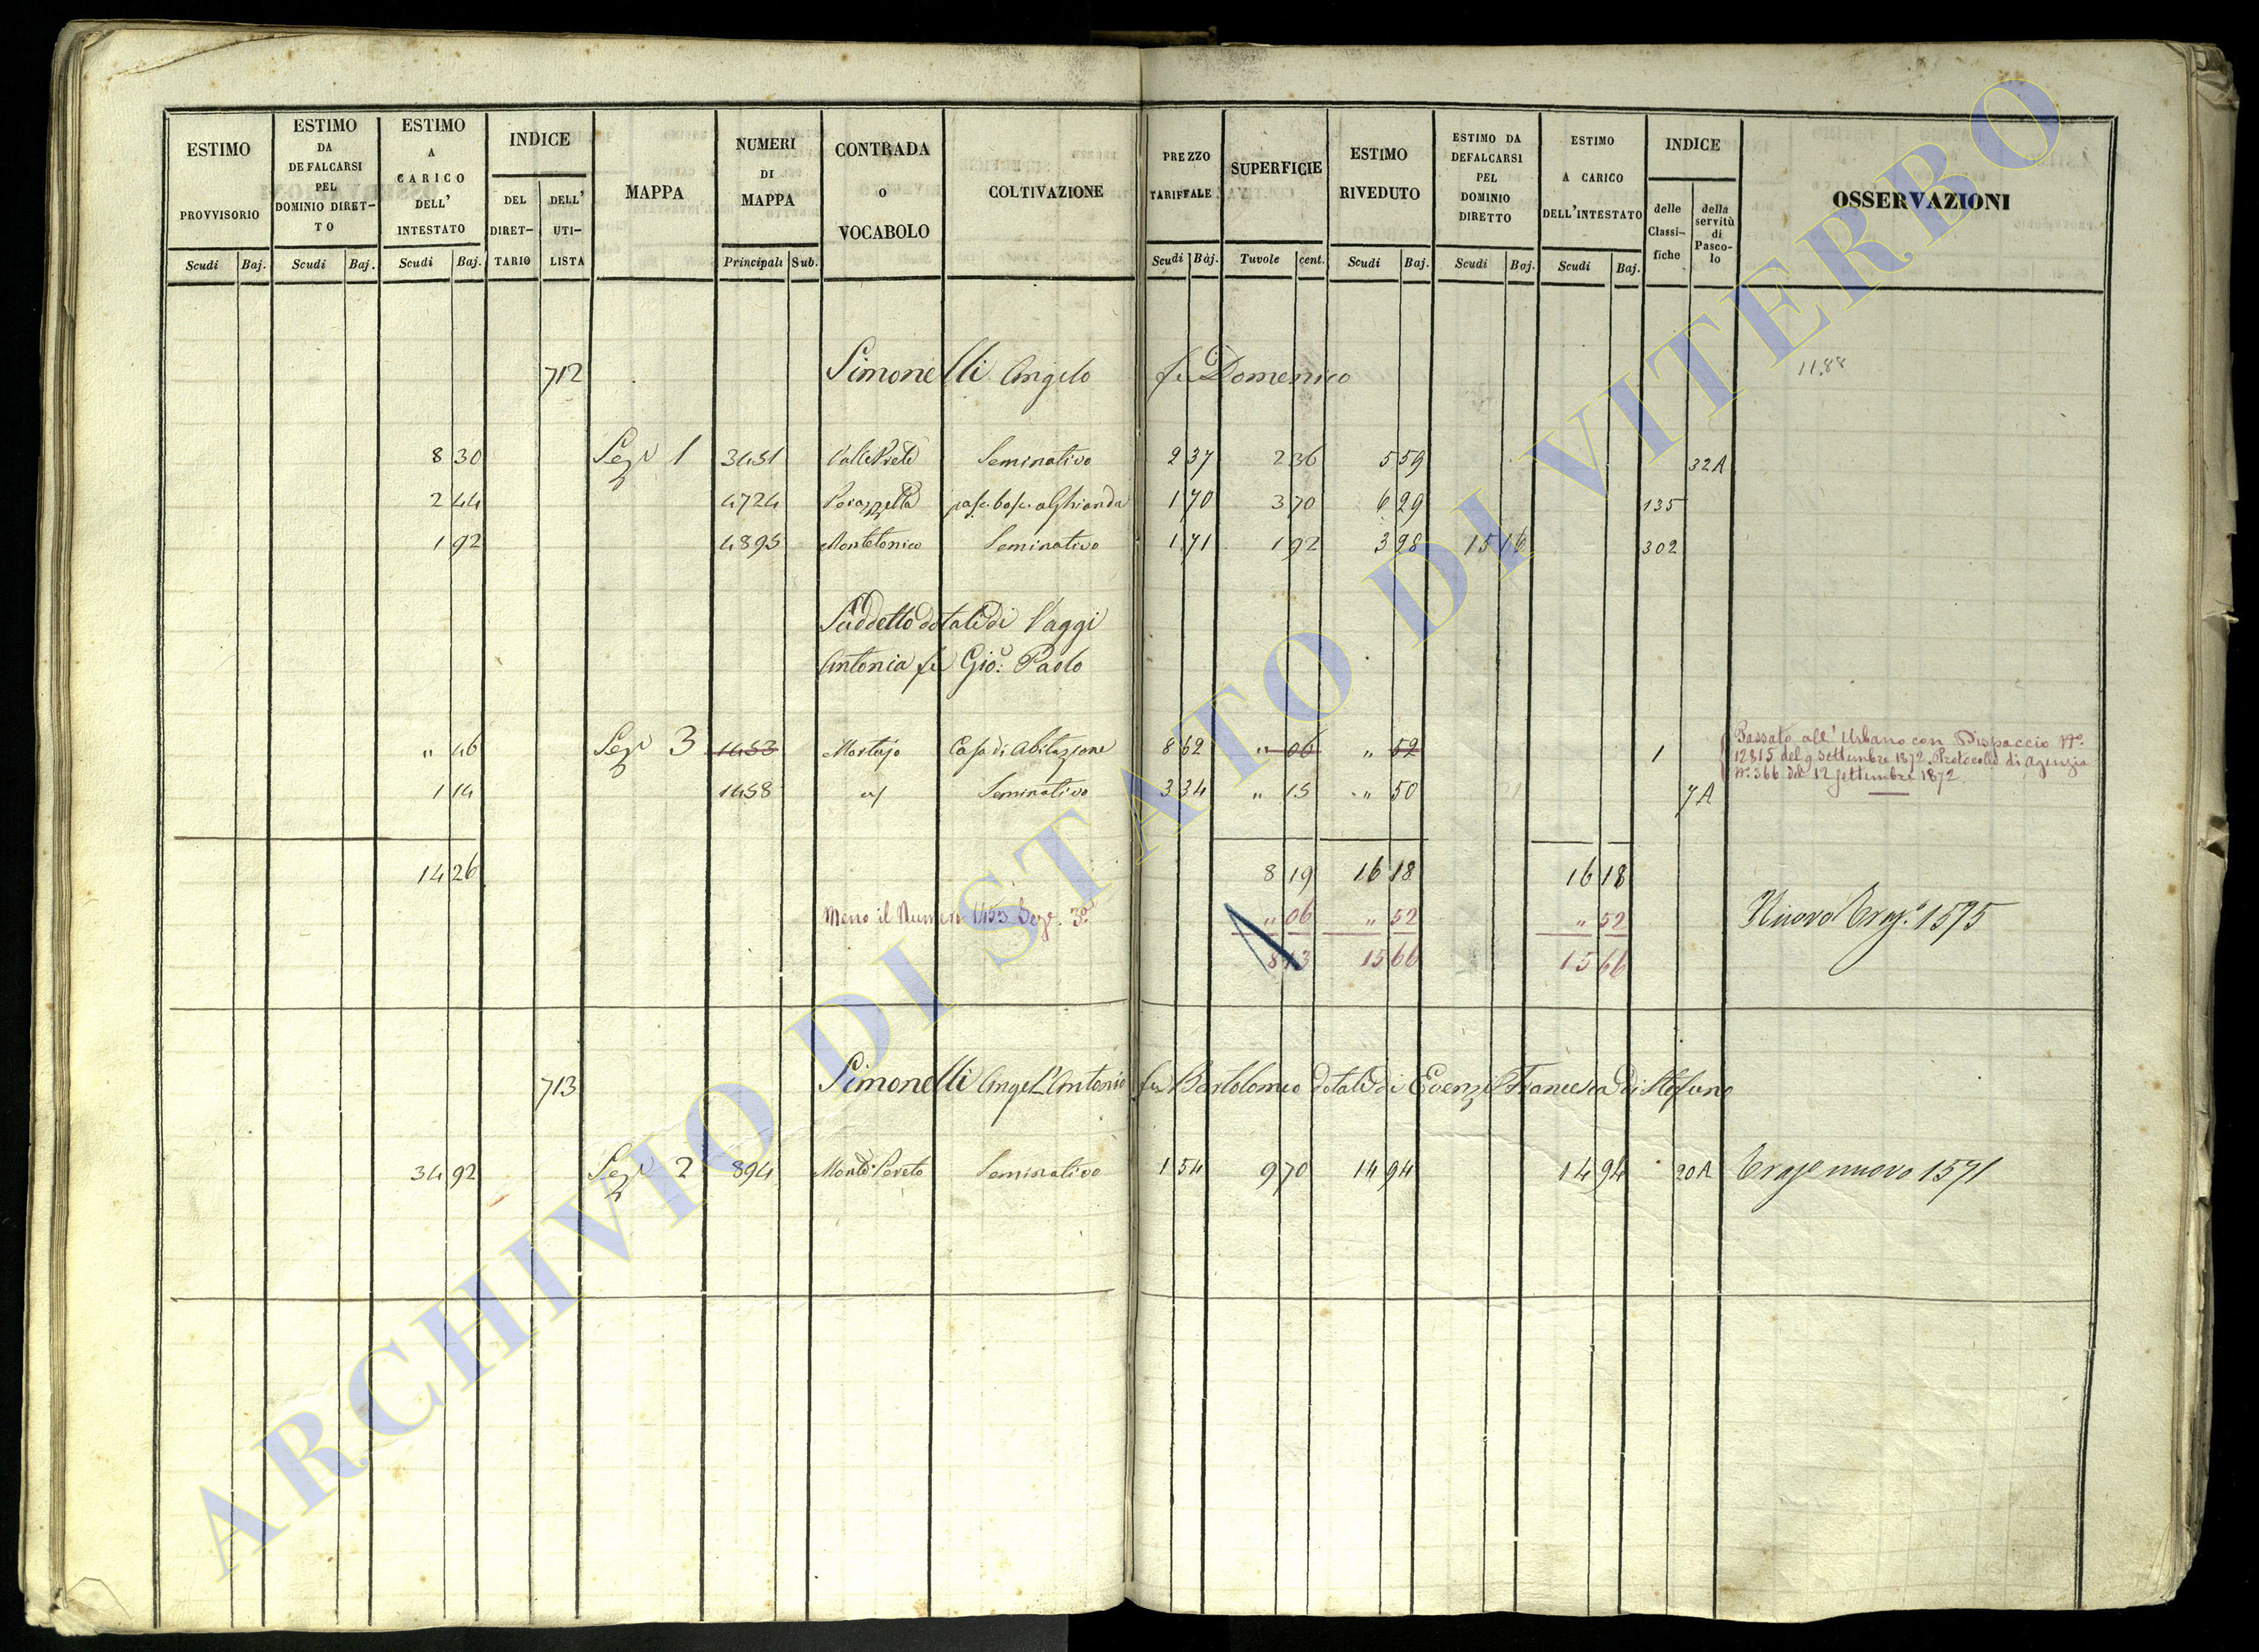 ESTIMO PROVVISORIO
Scudi Baj.
ESTIMO DA DEFALCARSI PEL DOMINIO DIRET-TO
Scudi Baj.
ESTIMO A CARICO DELL' INTESTATO
Scudi Baj.
INDICE
DEL DIRET-TARIO
DELL' UTI-LISTA
MAPPA
NUMERI DI MAPPA
Principali Sub.
CONTRADA O VOCABOLO
COLTIVAZIONE
PREZZO TARIFFALE
Scudi Baj.
SUPERFICIE
Tavole cent.
ESTIMO RIVEDUTO
Scudi Baj.
ESTIMO DA DEFALCARSI PEL DOMINIO DIRETTO
Scudi Baj.
ESTIMO A CARICO DELL'INTESTATO
Scudi Baj.
INDICE
delle Classi-fiche
della servitù di Pasco-lo
OSSERVAZIONI
712 Simonelli Angelo fu Domenico 1188
8 30 Sez.e 1 3451 Seminativo 2 37 2 36 5 59 32A
2 44 4724 pasc. bosc. a Ghianda 1 70 3 70 6 29 135
1 92 4895 Montetonico Seminativo 1 71 1 92 3 98 15 16 302
Suddetto dotale di Vaggi
Antonia fu Gio: Paolo
" 46 Sez.e 3 1453 Mortajo Casa di Abitazione 8 62 " 06 " 52 1
Passato all'Urbano con Dispaccio No.
12815 del 9 Settembre 1872. Protocollo di Agenzia
No. 366 del 12 settembre 1872.
1 14 1458 Seminativo 3 34 " 15 " 50 7A
14 26 8 19 16 18 16 18
Meno il Numero 1453 Sez. 3a " 06 " 52 " 52 Nuovo 1575
8 13 15 66 15 66
713 Simonelli Angel'Antonio fu Bartolomeo dotale di Evenzi Francesca di Stefano
34 92 Sez.e 2 894 Seminativo 1 54 9 70 14 94 14 94 20A nuovo 1571
ARCHIVIO DI STATO DI VITERBO